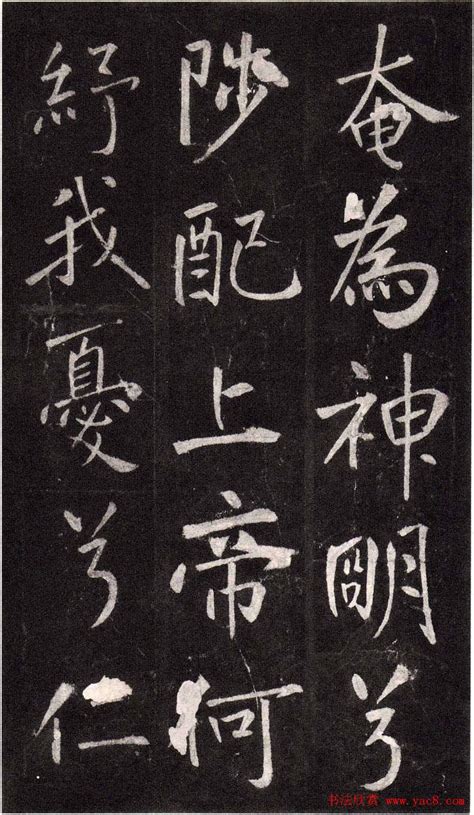 奄為神明兮
陟配上帝何
紓我憂兮仁
书法欣赏 www.yac8.com